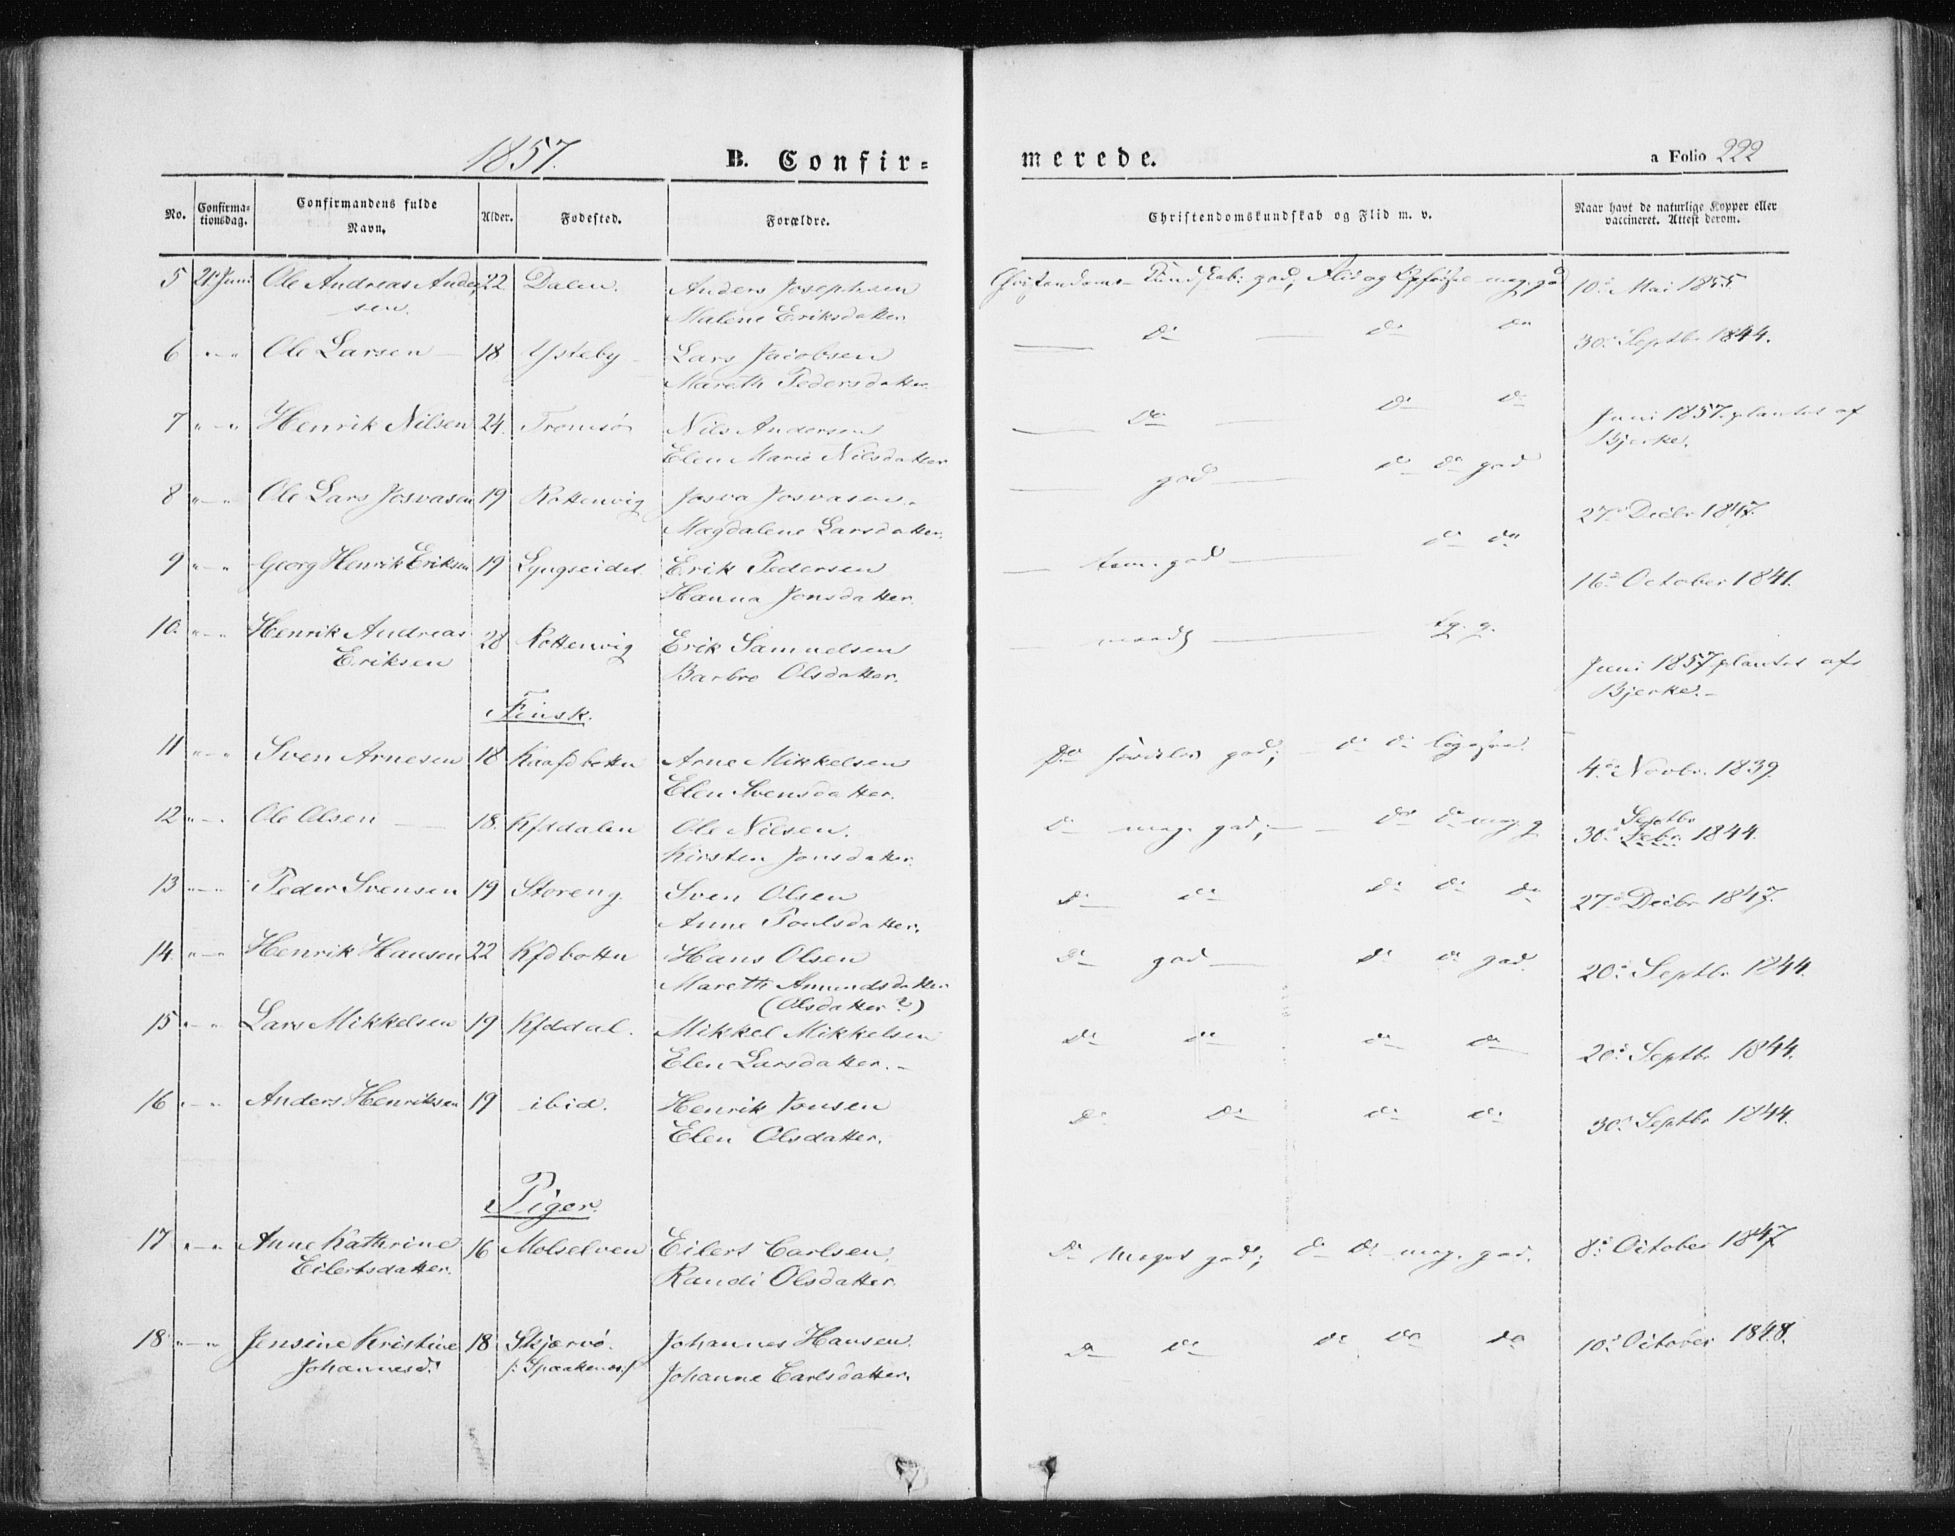 1857.
B. Confir=
merede.
a Folio 222
No.
Confirma-
tionsdag.
Confirmandens fulde
Navn.
Alder.
Fødested.
Forældre.
Christendomskundskab og Flid m. v.
Naar havt de naturlige Kopper eller
vaccineret. Attest derom.
5 21 Juni Ole Andreas Ander 22 Dalen. Anders Josephsen Christendoms-Kundskab: god; Flid og Opførsel meg. god 10de Mai 1855.
sen. Malene Eriksdatter
6 " - " Ole Larsen — 18 Ysteby Lars Jacobsen — do — do do 30de Septbr 1844.
Mareth Pedersdatter
7 " - " Henrik Nilsen 24. Tromsø Nils Andersen — do — do do Juni 1857. plantet af
Elen Marie Nilsdatter Bjerke.
8 " - " Ole Lars Josvasen 19 Rottenvig Josva Josvasen. — god — do do god 27de Decbr 1847.
Magdalene Larsdatter.
9 " - " Georg Henrik Eriksen 19 Lyngseidet Erik Pedersen — tem. god — do do 16de October 1841.
Hanna Jonsdatter.
10. " - " Henrik Andreas 28 Rottenvig Erik Samuelsen — maadl — Juni 1857 plantet af
Eriksen Barbro Olsdatter. Bjerke. -
Finsk.
11 " - " Sven Arnesen 18 Kaafdbotten Arne Mikkelsen do god; - do do 4de Novbr. 1839.
Elen Svensdatter.
12 " - " Ole Olsen — 18. Kfddalen Ole Nilsen. do meg. god; — do do meg. g Septbr
30de Febr. 1844.
Kirsten Jonsdatter.
13 " - " Peder Svensen 19 Storeng. Sven Olsen do do do do do 27de Decbr 1847.
Anne Poulsdatter.
14. " - " Henrik Hansen 22 Kfdbotten Hans Olsen do god — do do god. 20de Septbr 1844.
Mareth Amundsdatter
(Olsdatter?)
15 " - " Lars Mikkelsen 19 Kfddal. Mikkel Mikkelsen do do do do 20de Septbr 1844.
Elen Larsdatter. -
16 " - " Anders Henriksen 19 ibid. Henrik Jonsen do do do do 30de Septbr 1844.
Elen Olsdatter.
Piger.
17 " - " Anne Kathrine 16 Molselven Eilert Carlsen. do Meget god; do do meg. god. 8de October 1847
Eilertsdatter. Randi Olsdatter.
18 " - " Jensine Kristine 18 Skjærvø. Johannes Hansen. do do do do do 10de October 1848.
Johannesd. /: Spaakenes :/ Johanne Carlsdatter.